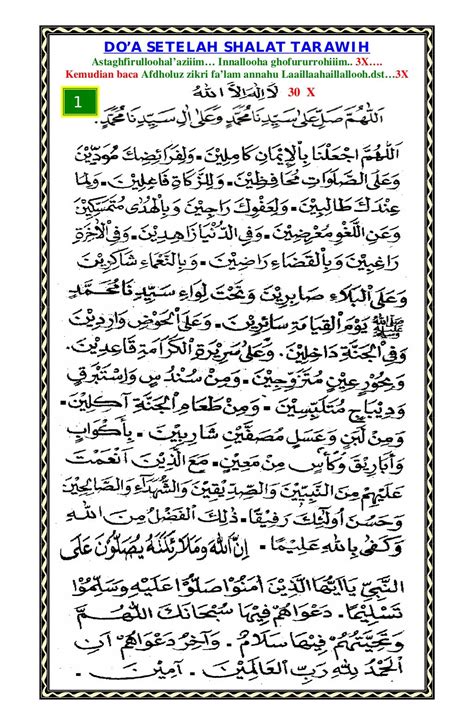 DO'A SETELAH SHALAT TARAWIH
Astaghfirulloohal'aziiim… Innallooha ghofururrohiiim.. 3X….
Kemudian baca Afdholuz zikri fa'lam annahu Laaillaahaillallooh.dst…3X
لَا إِلٰهَ إِلَّا اللهُ 30 X
1
اَللّٰهُمَّ صَلِّ عَلَى سَيِّدِنَا مُحَمَّدٍ وَعَلَى اٰلِ سَيِّدِنَا مُحَمَّدٍ.
اَللّٰهُمَّ اجْعَلْنَا بِالْإِيْمَانِ كَامِلِيْنَ. وَلِفَرَائِضِكَ مُؤَدِّيْنَ
وَعَلَى الصَّلَوَاتِ مُحَافِظِيْنَ. وَلِلزَّكَاةِ فَاعِلِيْنَ. وَلِمَا
عِنْدَكَ طَالِبِيْنَ. وَلِعَفْوِكَ رَاجِيْنَ وَبِالْهُدَى مُتَمَسِّكِيْنَ
وَعَنِ اللَّغْوِ مُعْرِضِيْنَ. وَفِي الدُّنْيَا زَاهِدِيْنَ. وَفِي الْاٰخِرَةِ
رَاغِبِيْنَ وَبِالْقَضَاءِ رَاضِيْنَ. وَبِالنَّعْمَاءِ شَاكِرِيْنَ
وَعَلَى الْبَلَاءِ صَابِرِيْنَ وَتَحْتَ لِوَاءِ سَيِّدِنَا مُحَمَّدٍ
ﷺ يَوْمَ الْقِيَامَةِ سَائِرِيْنَ. وَعَلَى الْحَوْضِ وَارِدِيْنَ
وَفِي الْجَنَّةِ دَاخِلِيْنَ. وَعَلَى سَرِيْرَةِ الْكَرَامَةِ قَاعِدِيْنَ.
وَبِحُوْرٍ عِيْنٍ مُتَزَوِّجِيْنَ. وَمِنْ سُنْدُسٍ وَاِسْتَبْرَقٍ
وَدِيْبَاجٍ مُتَلَبِّسِيْنَ. وَمِنْ طَعَامِ الْجَنَّةِ اٰكِلِيْنَ.
وَمِنْ لَبَنٍ وَعَسَلٍ مُصَفَّيْنِ شَارِبِيْنَ. بِأَكْوَابٍ
وَأَبَارِيْقَ وَكَأْسٍ مِنْ مَعِيْنٍ. مَعَ الَّذِيْنَ اَنْعَمْتَ
عَلَيْهِمْ مِنَ النَّبِيِّيْنَ وَالصِّدِّيْقِيْنَ وَالشُّهَدَاءِ وَالصَّالِحِيْنَ
وَحَسُنَ أُولٰئِكَ رَفِيْقًا. ذٰلِكَ الْفَضْلُ مِنَ اللهِ
وَكَفٰى بِاللهِ عَلِيْمًا. إِنَّ اللهَ وَمَلَائِكَتَهُ يُصَلُّوْنَ عَلَى
النَّبِيِّ يَااَيُّهَا الَّذِيْنَ اٰمَنُوْا صَلُّوْا عَلَيْهِ وَسَلِّمُوْا
تَسْلِيْمًا. دَعْوَاهُمْ فِيْهَا سُبْحَانَكَ اللّٰهُمَّ
وَتَحِيَّتُهُمْ فِيْهَا سَلَامٌ. وَاٰخِرُ دَعْوَاهُمْ اَنِ
الْحَمْدُ لِلّٰهِ رَبِّ الْعَالَمِيْنَ. اٰمِيْنَ.